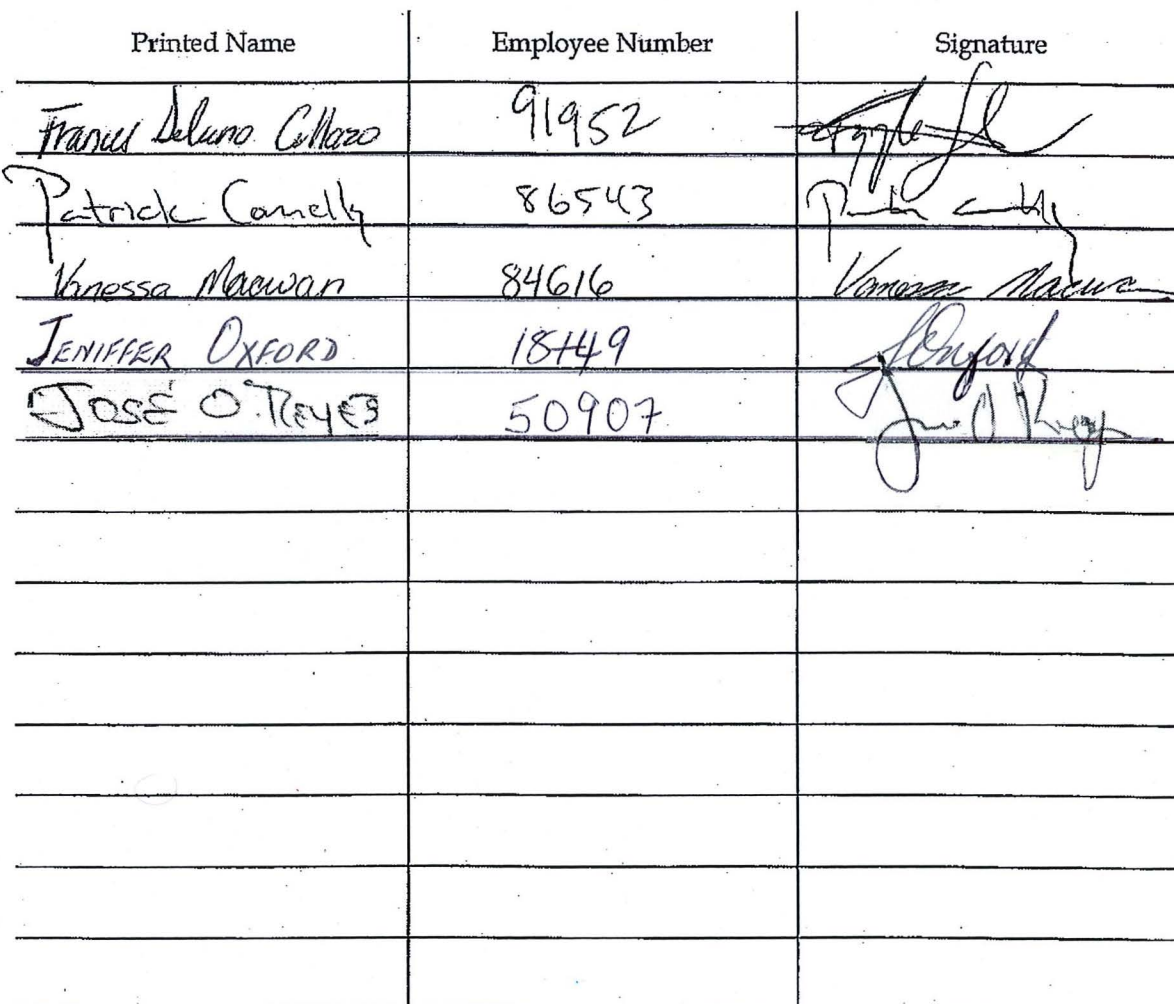 Printed Name Employee Number Signature
Francis Deluno Collazo 91952
Patrick Connelly 86543
Vanessa Macwan 84616 Vanessa Macwan
JENIFFER OXFORD 18449 JOxford
JOSÉ O. REYES 50907